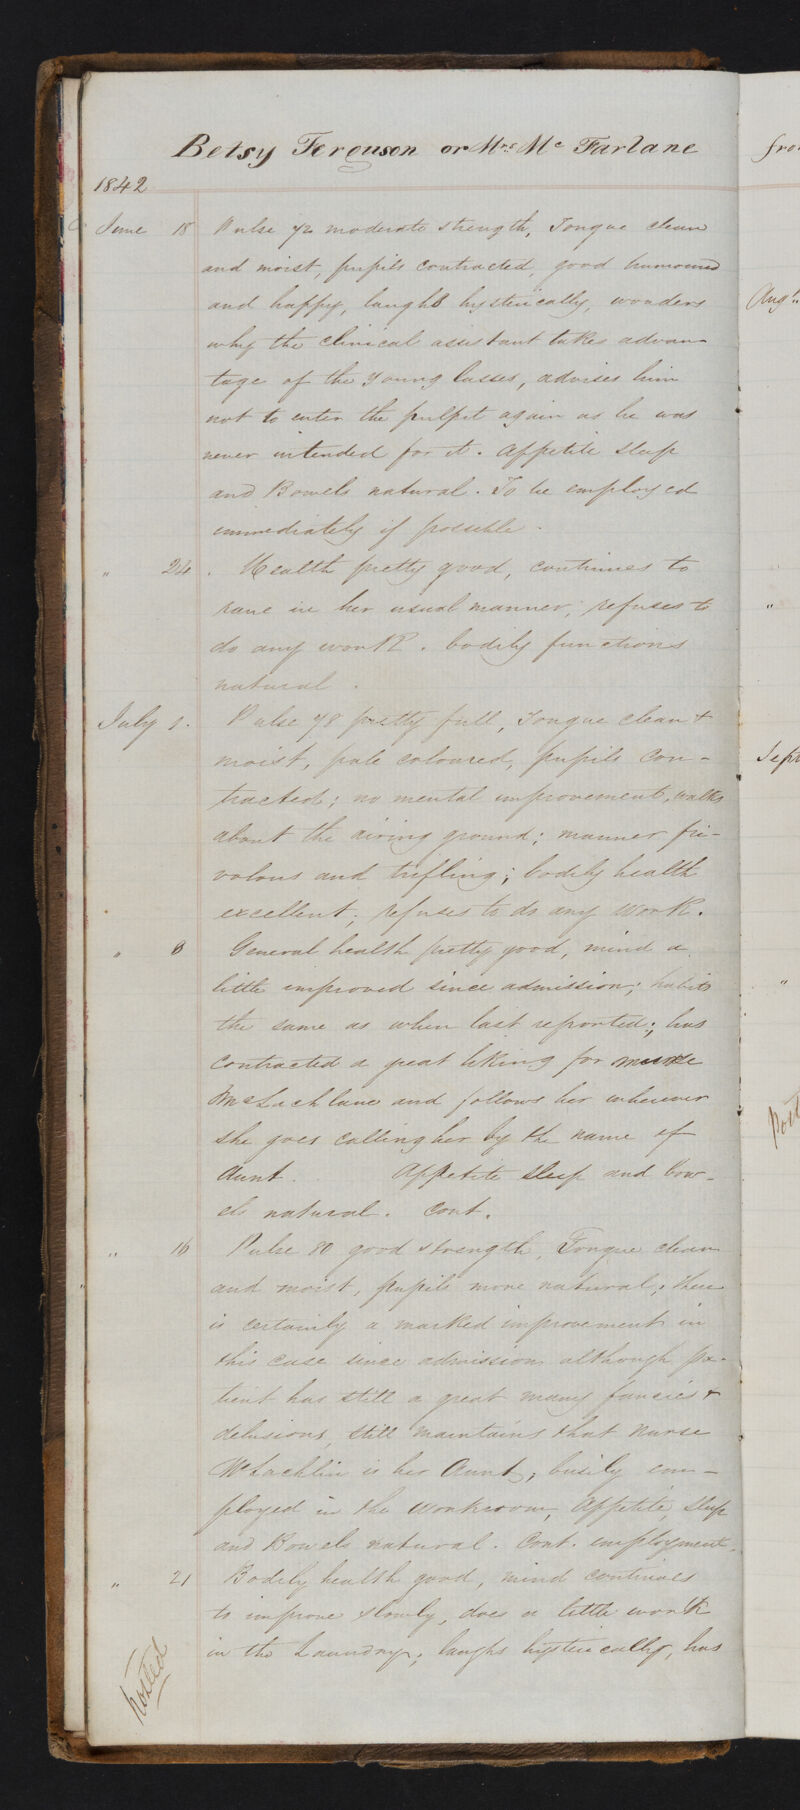 Betsy Ferguson or Mrs Mc Farlane
1842
June 18 Pulse 72 moderate strength, Tongue clean
and moist, pupils contracted, good humoured
and happy, laughs hysterically, wonders
why the clinical assistant takes advan-
tage of the young lasses, advises him
not to enter the pulpit again as he was
never intended for it. Appetite sleep
and Bowels natural. To be employed
immediately if possible.
" 24. Health pretty good, continues to
rave in her usual manner; refuses to
do any work. bodily functions
natural.
July 1. Pulse 78 pretty full, Tongue clean +
moist, pale coloured, pupils con-
tracted; no mental improvement, walks
about the airing ground; manner fri-
volous and trifling; bodily health
excellent; refuses to do any work.
" 8 General health pretty good, mind a
little improved since admission; habits
the same as when last reported; has
contracted a great liking for nurse
McLachlane and follows her wherever
she goes calling her by the name of
Aunt. Appetite sleep and bow-
els natural. Cont.
" 16 Pulse 80 good strength, Tongue clean
and moist, pupils more natural; there
is certainly a marked improvement in
this case since admission although pa-
tient has still a great many fancies +
delusions, still maintains that nurse
McLachlin is her Aunt, busily em-
ployed in the workroom, Appetite, sleep
and Bowels natural. Cont. employment.
" 21 Bodily health good, mind continues
to improve slowly, does a little work
in the Laundry; laughs hysterically, has
posted
fro
Augt.
"
Sept
"
post